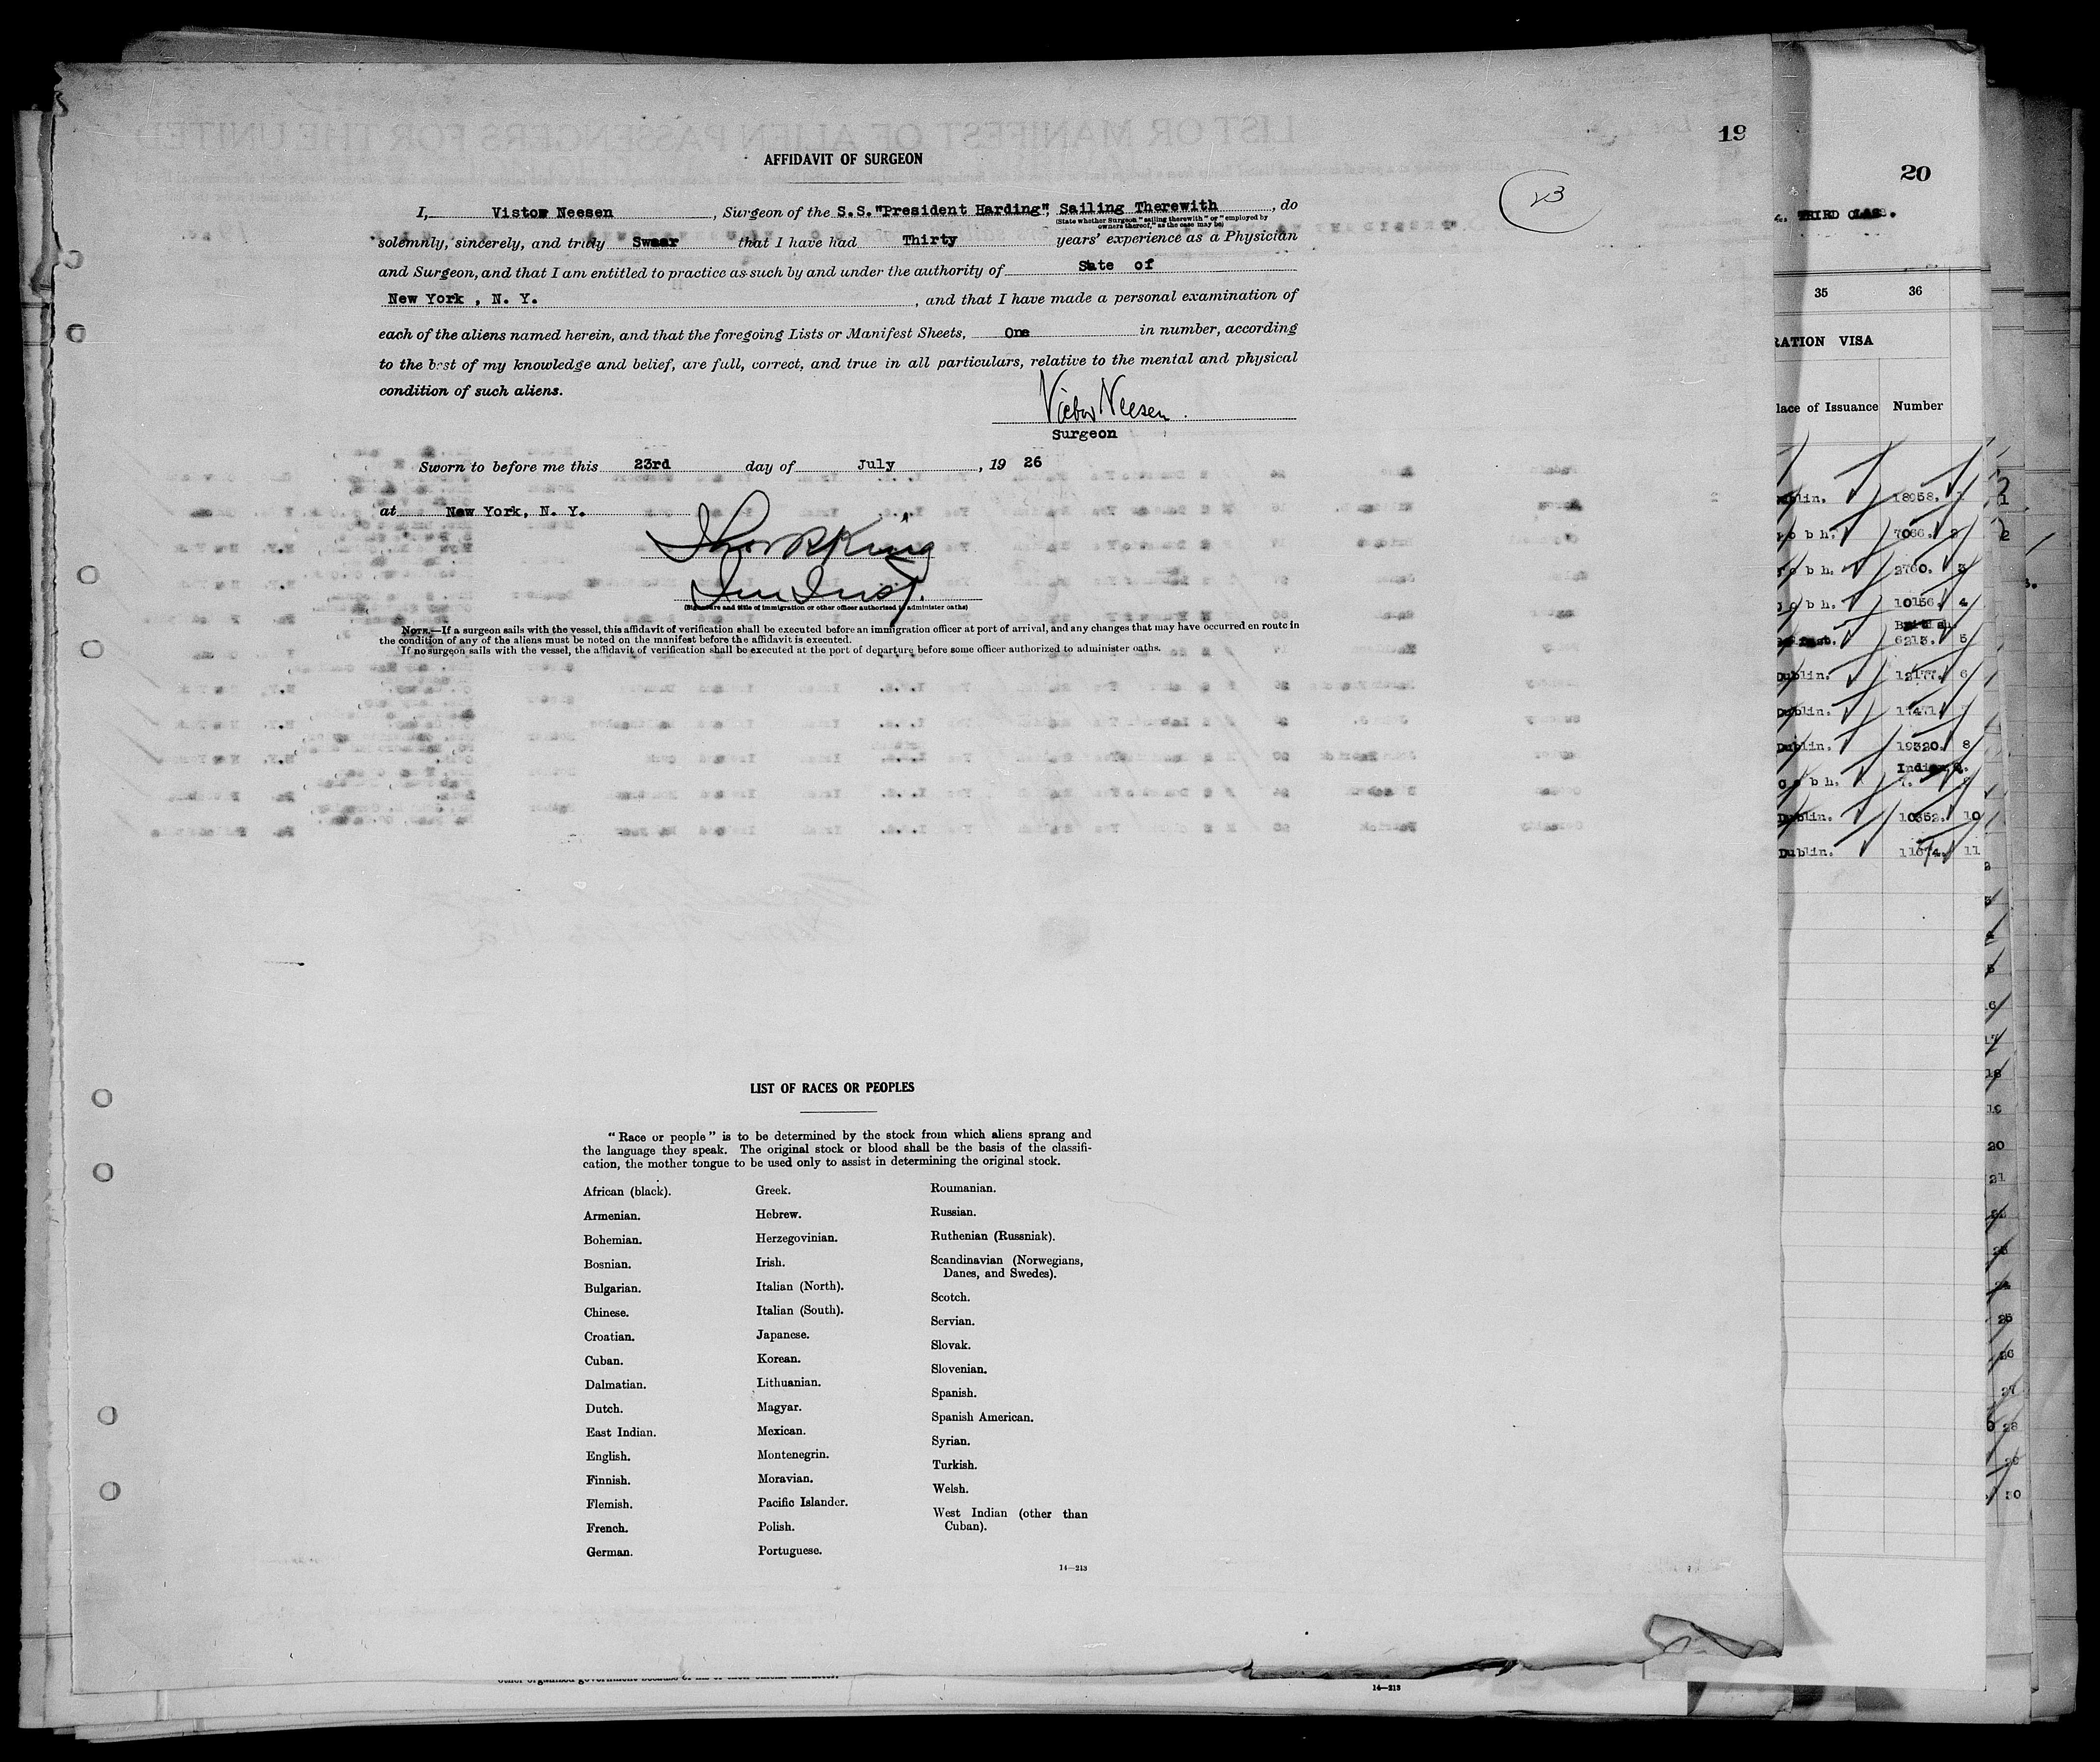 19
AFFIDAVIT OF SURGEON
23
I, Vistor Neesen, Surgeon of the S.S."President Harding", Sailing Therewith, do
(State whether Surgeon "sailing therewith" or "employed by
owners thereof," as the case may be)
solemnly, sincerely, and truly Swear that I have had Thirty years' experience as a Physician
and Surgeon, and that I am entitled to practice as such by and under the authority of State of
New York , N. Y. , and that I have made a personal examination of
each of the aliens named herein, and that the foregoing Lists or Manifest Sheets, One in number, according
to the best of my knowledge and belief, are full, correct, and true in all particulars, relative to the mental and physical
condition of such aliens.
Victor Neesen.
Surgeon
Sworn to before me this 23rd day of July, 19 26
at New York, N. Y.
(Signature and title of immigration or other officer authorized to administer oaths)
NOTE.—If a surgeon sails with the vessel, this affidavit of verification shall be executed before an immigration officer at port of arrival, and any changes that may have occurred en route in
the condition of any of the aliens must be noted on the manifest before the affidavit is executed.
If no surgeon sails with the vessel, the affidavit of verification shall be executed at the port of departure before some officer authorized to administer oaths.
LIST OF RACES OR PEOPLES
"Race or people" is to be determined by the stock from which aliens sprang and
the language they speak. The original stock or blood shall be the basis of the classifi-
cation, the mother tongue to be used only to assist in determining the original stock.
African (black).
Armenian.
Bohemian.
Bosnian.
Bulgarian.
Chinese.
Croatian.
Cuban.
Dalmatian.
Dutch.
East Indian.
English.
Finnish.
Flemish.
French.
German.
Greek.
Hebrew.
Herzegovinian.
Irish.
Italian (North).
Italian (South).
Japanese.
Korean.
Lithuanian.
Magyar.
Mexican.
Montenegrin.
Moravian.
Pacific Islander.
Polish.
Portuguese.
Roumanian.
Russian.
Ruthenian (Russniak).
Scandinavian (Norwegians,
Danes, and Swedes).
Scotch.
Servian.
Slovak.
Slovenian.
Spanish.
Spanish American.
Syrian.
Turkish.
Welsh.
West Indian (other than
Cuban).
14—213
20
THIRD CLASS.
35 36
RATION VISA
lace of Issuance Number
Dublin. 18058. 1
o b h. 7066. 2
o b h. 2760. 3
o b h. 10156. 4
British.
6213. 5
Dublin. 12177. 6
Dublin. 17471. 7
Dublin. 19320. 8
o b h.
Dublin. 10352. 10
Dublin. 11
14—213